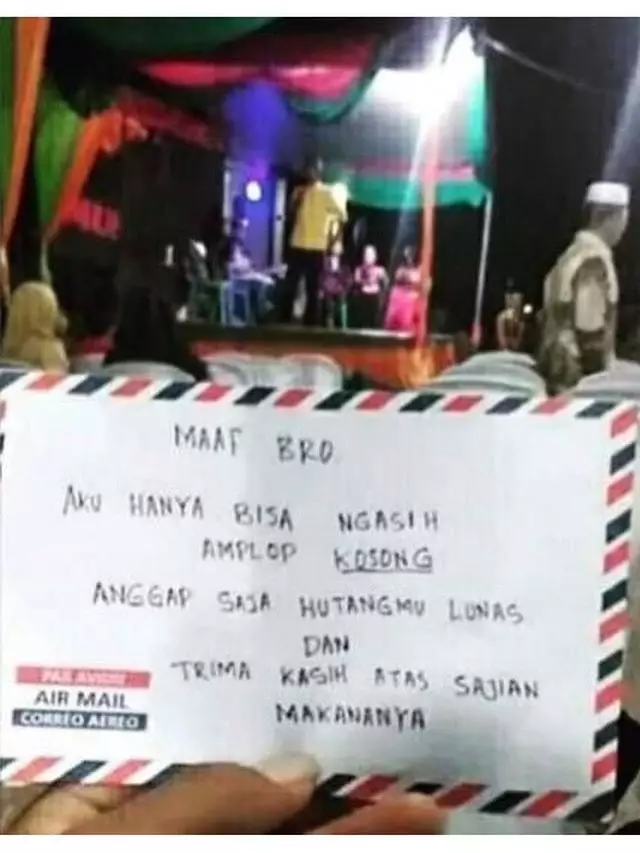 MAAF BRO
AKU HANYA BISA NGASIH
AMPLOP KOSONG
ANGGAP SAJA HUTANGMU LUNAS
DAN
TRIMA KASIH ATAS SAJIAN
MAKANANYA
PAR AVION
AIR MAIL
CORREO AEREO